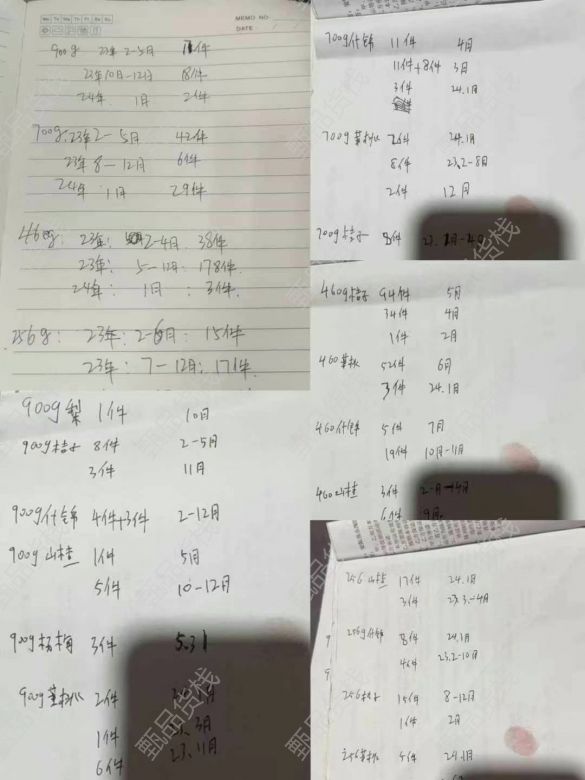 MEMO NO.
DATE
Mo Tu We Th Fr Sa Su
900g 23年 2-5月 11件
23年10月-12月 18件
24年 1月 2件
700g: 23年2-5月 42件
23年 8-12月 6件
24年 1月 29件
460g: 23年: 2-4月. 38件
23年: 5-12月: 178件.
24年: 1月: 3件.
256g: 23年: 2-6月: 15件
23年: 7-12月: 171件.
700g什锦 11件 4月
11件+8件 3月
3件 24.1月
700g黄桃 26件 24.1月
8件 23.2-8月
2件 12月
700g桔子 8件
460g桔子 94件 5月
34件 4月
1件 2月
460黄桃 52件 6月
3件 24.1月
460什锦 5件 7月
19件 10月-11月
460山楂 3件 2-4月
6件 9月
900g梨 1件 10月
900g桔子 8件 2-5月
3件 11月
900g什锦 4件+3件 2-12月
900g山楂 1件 5月
5件 10-12月
900g杨梅 3件 5.31
900g黄桃 2件
1件 3月
6件 23.11月
256山楂 17件 24.1月
3件 23.3-4月
256g什锦 8件 24.1月
4件 23.2-10月
256桔子 15件 8-12月
1件 2月
256黄桃 5件 24.1月
甄品货栈